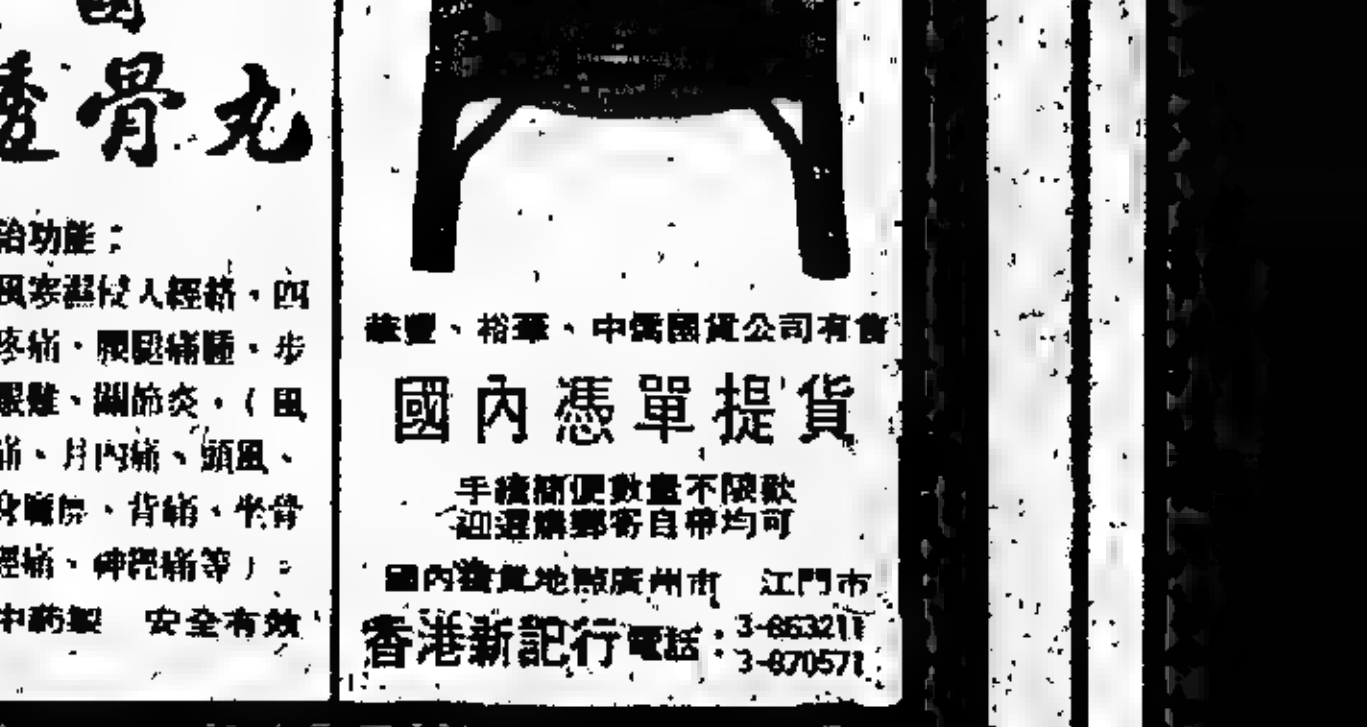 透骨丸
治功能：
風寒濕侵入經絡，四
疼痛，腰腿痛腫，步
艱難、關節炎，（風
痛、月內痛、頭風、
背痛，坐骨
經痛、神經痛等）。
中葯製 安全有效
華豐、裕華、中僑國貨公司有售
國內憑單提貨
手續簡便數量不限歡
迎選購郵寄自帶均可
國內發貨地點廣州市 江門市
香港新記行電話：3-863211
3-870571